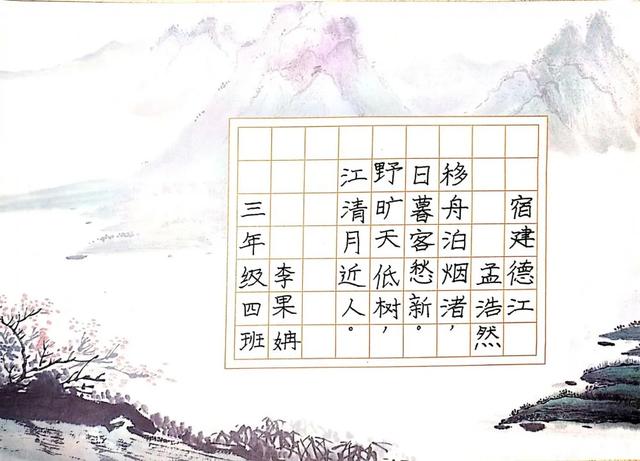 宿建德江
孟浩然
移舟泊烟渚，
日暮客愁新。
野旷天低树，
江清月近人。
李果姌
三年级四班